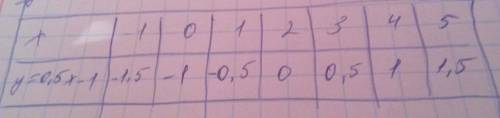 x -1 0 1 2 3 4 5
y=0,5x-1 -1,5 -1 -0,5 0 0,5 1 1,5